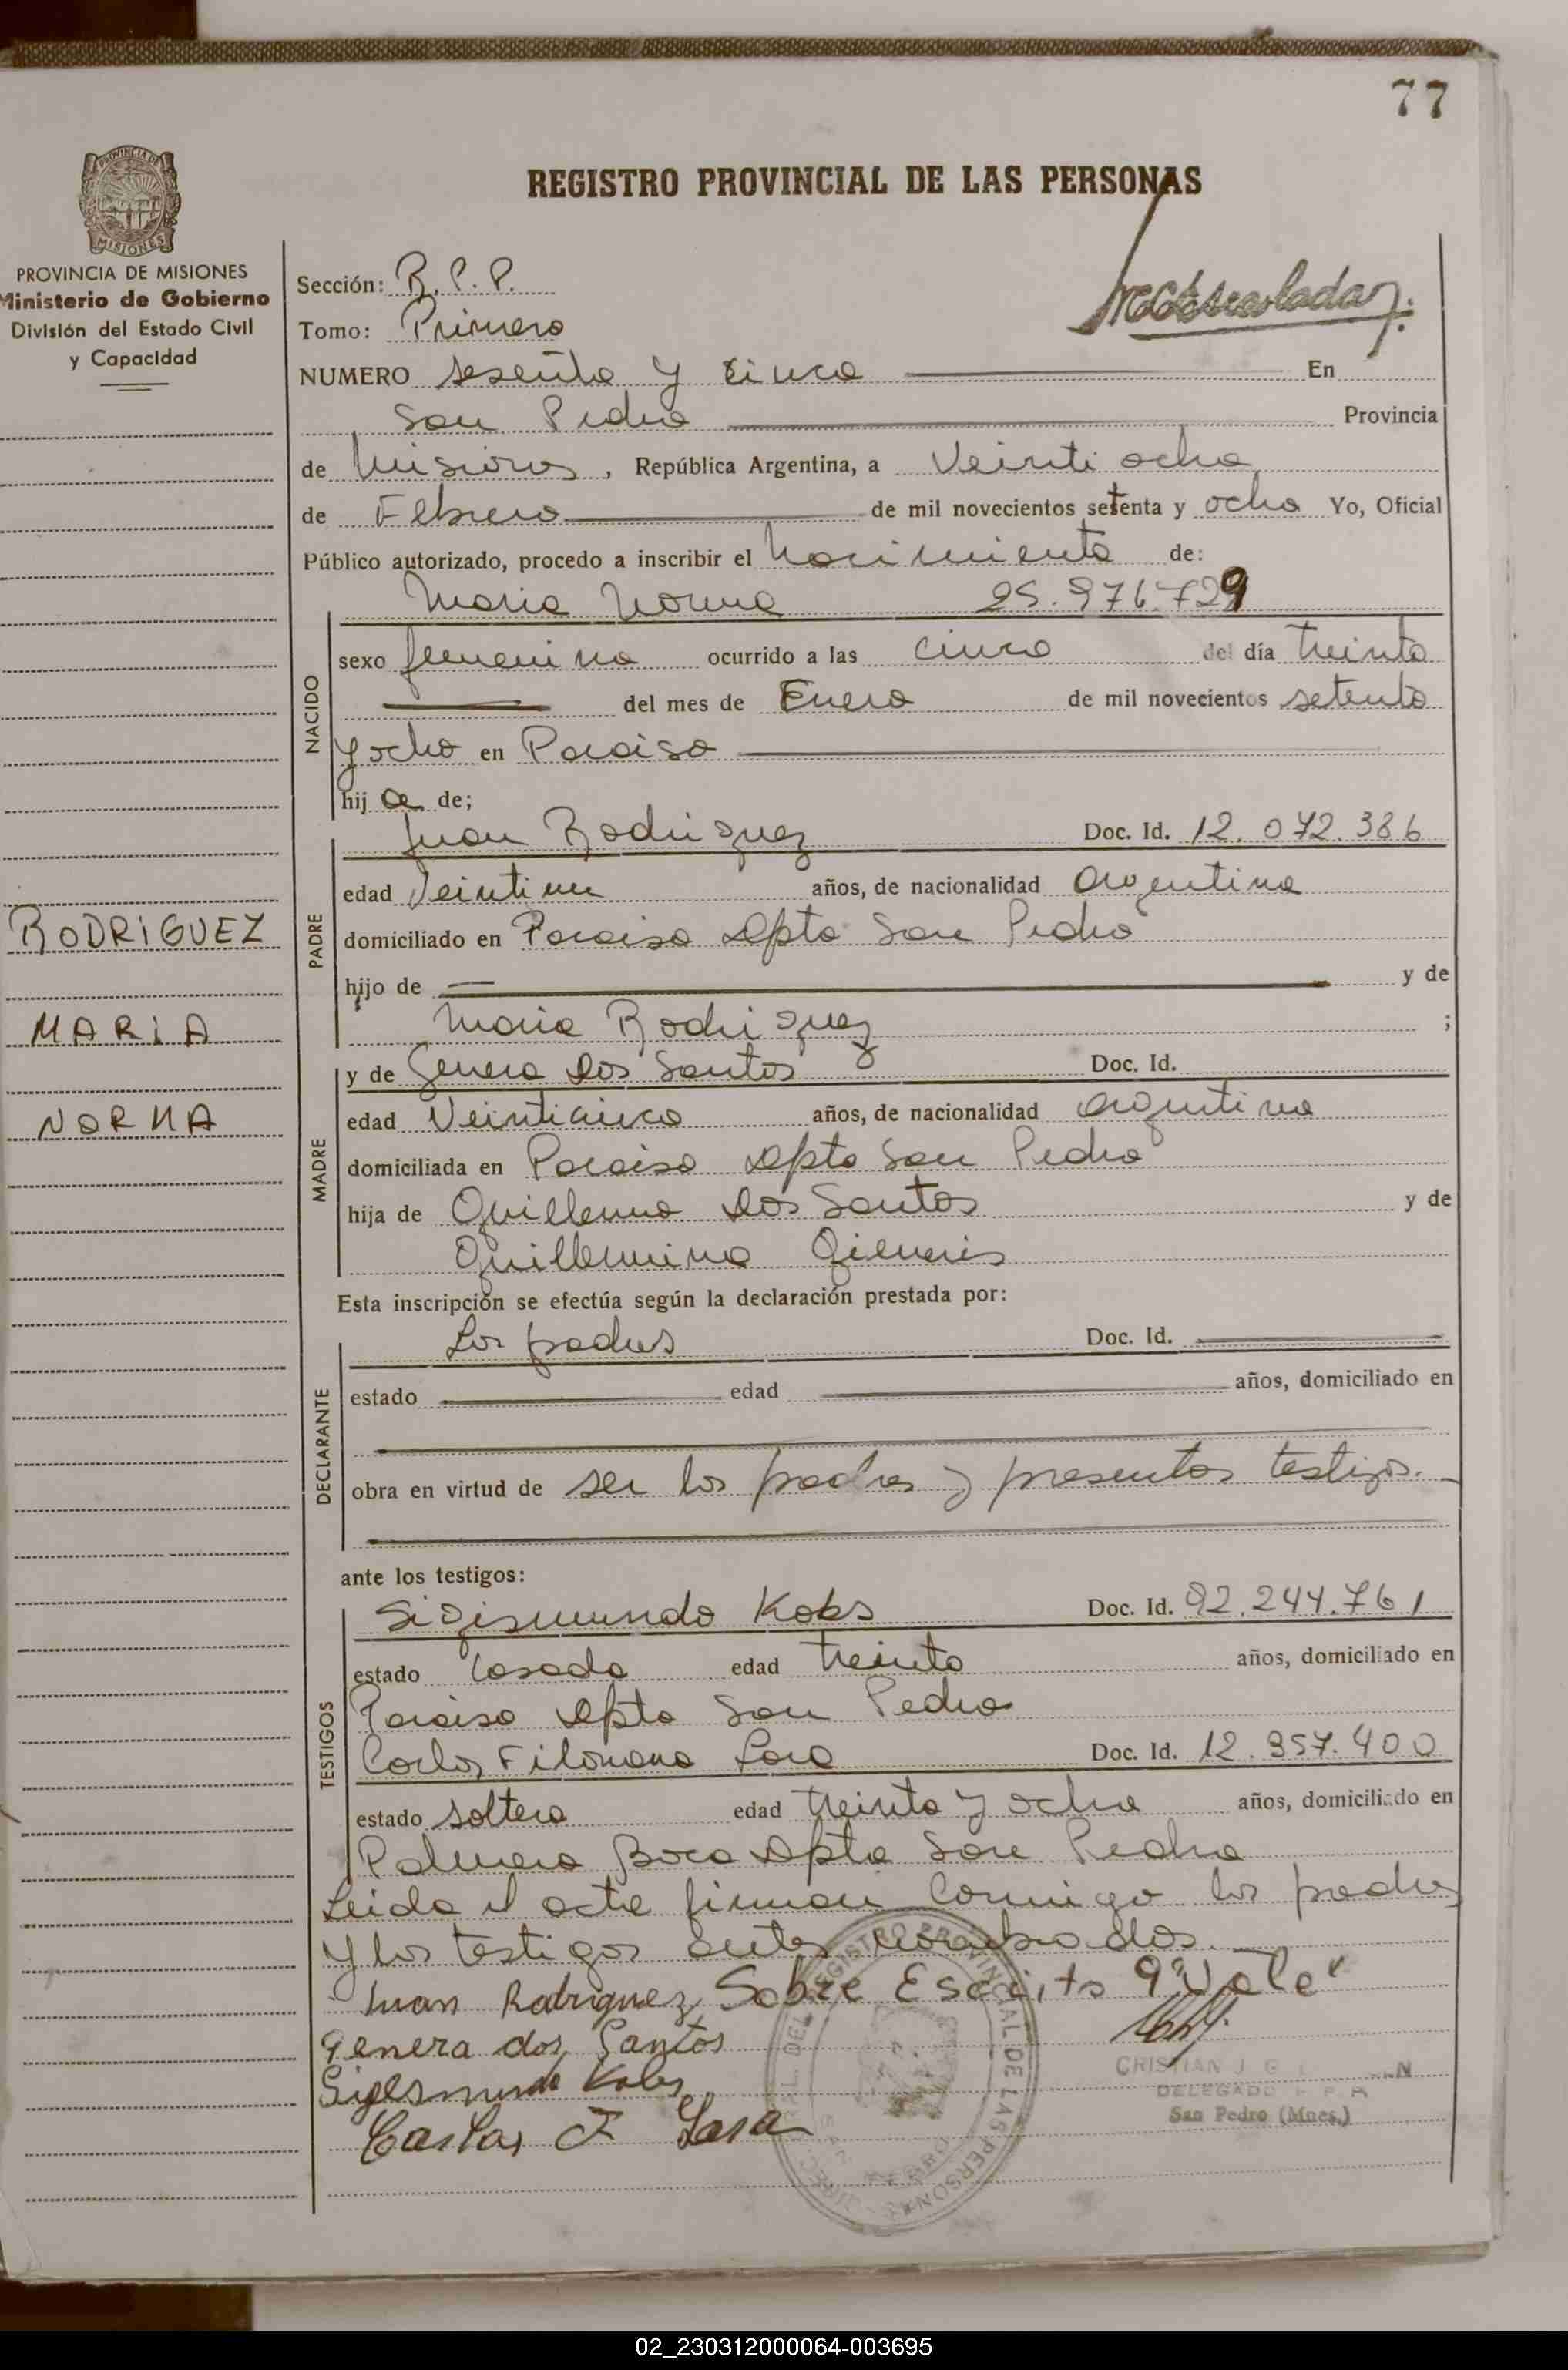 77
REGISTRO PROVINCIAL DE LAS PERSONAS
PROVINCIA DE MISIONES
PROVINCIA DE MISIONES
Ministerio de Gobierno
División del Estado Civil
y Capacidad
Sección: R.P.P.
Tomo: Primero
NUMERO sesenta y cinco En
San Pedro Provincia
de Misiones, República Argentina, a Veinti ocho
de Febrero de mil novecientos setenta y ocho Yo, Oficial
Público autorizado, procedo a inscribir el Nacimiento de:
Maria Norma 25.976.729
NACIDO
sexo femenino ocurrido a las cinco del día treinta
del mes de Enero de mil novecientos setenta
y ocho en Paraiso
hija de;
PADRE
Juan Rodriguez Doc. Id. 12.072.386
edad Veintiun años, de nacionalidad argentina
domiciliado en Paraiso Dpto San Pedro
hijo de y de
Maria Rodriguez ;
RODRIGUEZ
MARIA
NORMA
MADRE
y de Genera Dos Santos Doc. Id.
edad Veinticinco años, de nacionalidad argentina
domiciliada en Paraiso Dpto San Pedro
hija de Guillermo Dos Santos y de
Guillermina
Esta inscripción se efectúa según la declaración prestada por:
DECLARANTE
Los padres Doc. Id.
estado edad años, domiciliado en
obra en virtud de ser los padres y presentes testigos.
ante los testigos:
TESTIGOS
Sigismundo Kobs Doc. Id. 92.244.761
estado Casado edad treinta años, domiciliado en
Paraiso Dpto San Pedro
Carlos Filomeno Lara Doc. Id. 12.357.400
estado soltero edad treinta y ocho años, domiciliado en
Palmera Boca Dpto San Pedro
Leida el acta firman conmigo los padres
y los testigos antes nombrados.
Juan Rodriguez Sobre Escrito 9 "Vale"
Genera dos Santos
Kobs
Carlos F Lara
REGISTRO PROVINCIAL DE LAS PERSONAS
CRISTIAN J.
DELEGADO R P P
San Pedro (Mnes.)
02_230312000064-003695